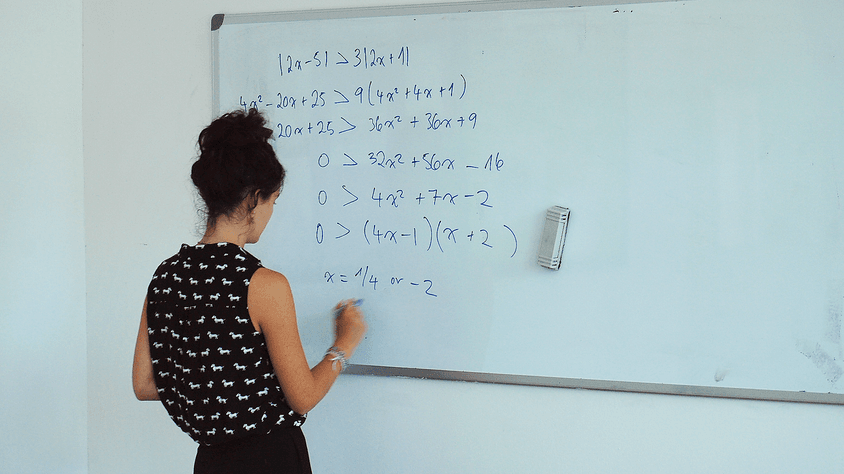 |2x-5| > 3|2x+1|
4x² - 20x + 25 > 9(4x² + 4x + 1)
20x + 25 > 36x² + 36x + 9
0 > 32x² + 56x - 16
0 > 4x² + 7x - 2
0 > (4x-1)(x+2)
x = 1/4 or -2